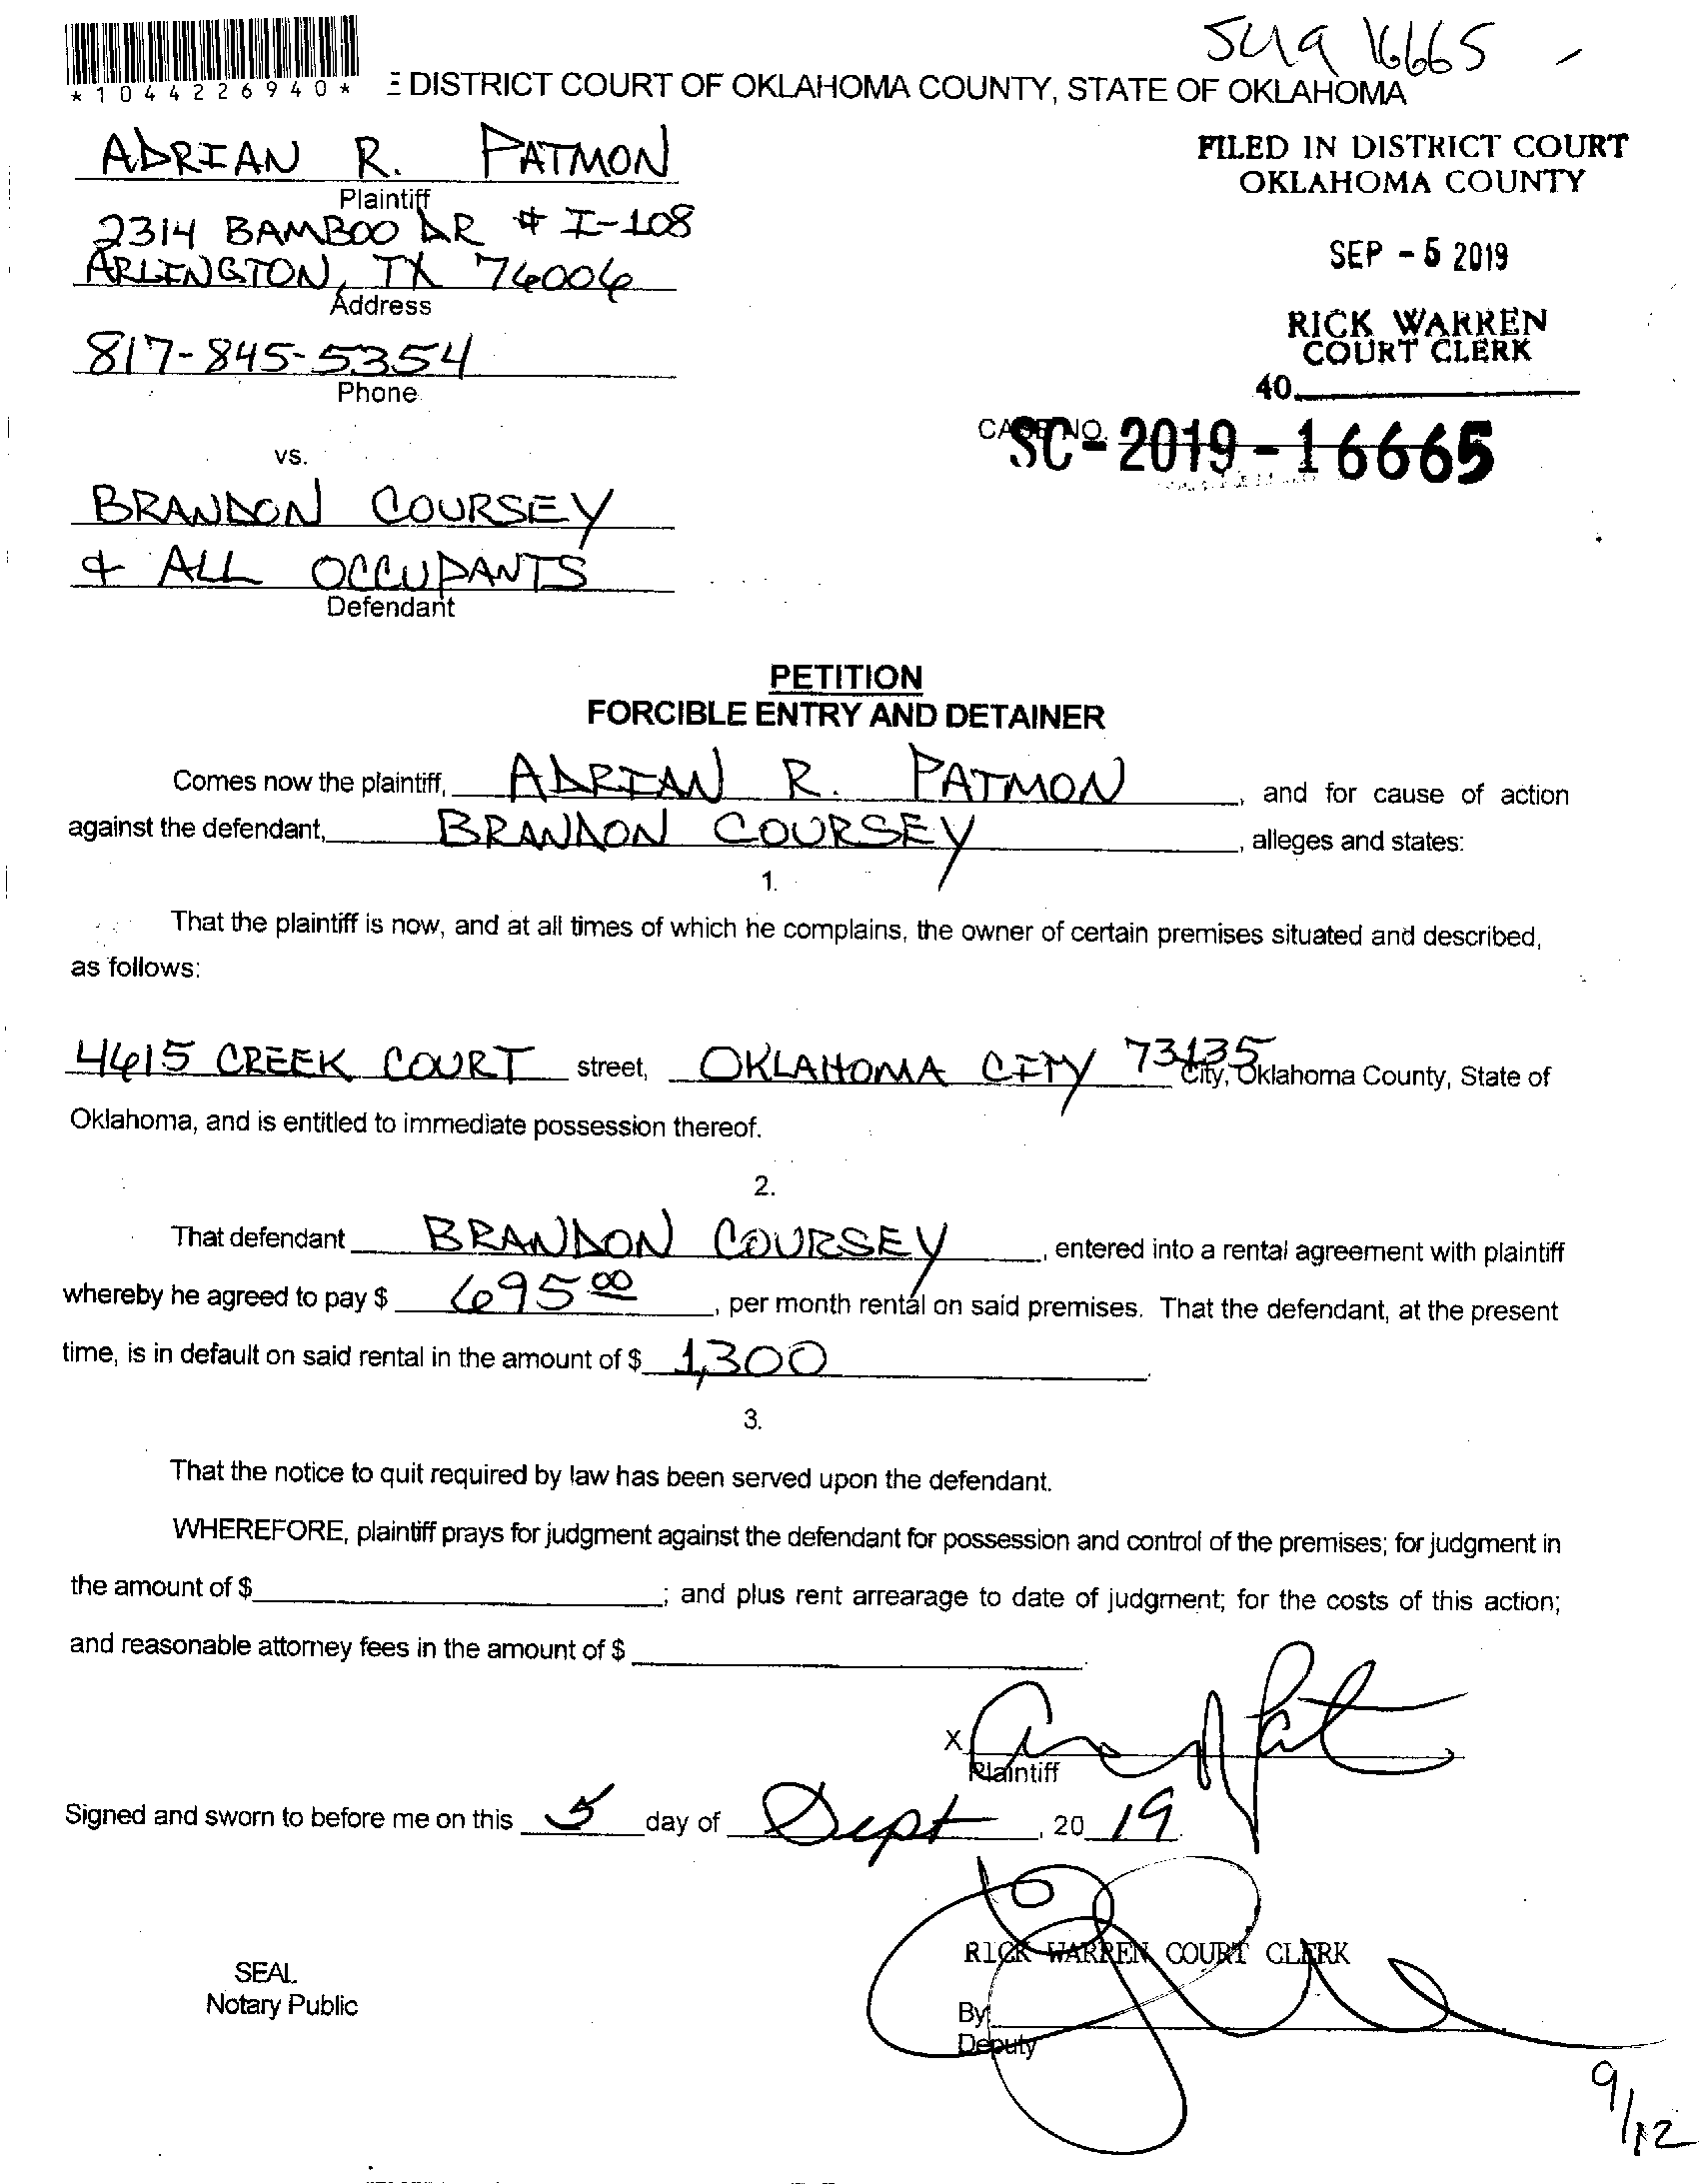 SC19 16665
*1044226940*
E DISTRICT COURT OF OKLAHOMA COUNTY, STATE OF OKLAHOMA
ADRIAN R. PATMON
Plaintiff
2314 BAMBOO DR # I-108
ARLINGTON, TX 76006
Address
817-845-5354
Phone
FILED IN DISTRICT COURT
OKLAHOMA COUNTY
SEP - 5 2019
RICK WARREN
COURT CLERK
40
CASE NO. SC-2019-16665
vs.
BRANDON COURSEY
& ALL OCCUPANTS
Defendant
PETITION
FORCIBLE ENTRY AND DETAINER
Comes now the plaintiff, ADRIAN R. PATMON, and for cause of action
against the defendant, BRANDON COURSEY, alleges and states:
1.
That the plaintiff is now, and at all times of which he complains, the owner of certain premises situated and described,
as follows:
4615 CREEK COURT street, OKLAHOMA CITY 73135 City, Oklahoma County, State of
Oklahoma, and is entitled to immediate possession thereof.
2.
That defendant BRANDON COURSEY, entered into a rental agreement with plaintiff
whereby he agreed to pay $ 695.00, per month rental on said premises. That the defendant, at the present
time, is in default on said rental in the amount of $ 1,300.
3.
That the notice to quit required by law has been served upon the defendant.
WHEREFORE, plaintiff prays for judgment against the defendant for possession and control of the premises; for judgment in
the amount of $ ; and plus rent arrearage to date of judgment; for the costs of this action;
and reasonable attorney fees in the amount of $ .
X
Plaintiff
Signed and sworn to before me on this 5 day of Sept, 20 19.
RICK WARREN COURT CLERK
SEAL
Notary Public
By
Deputy
9/12